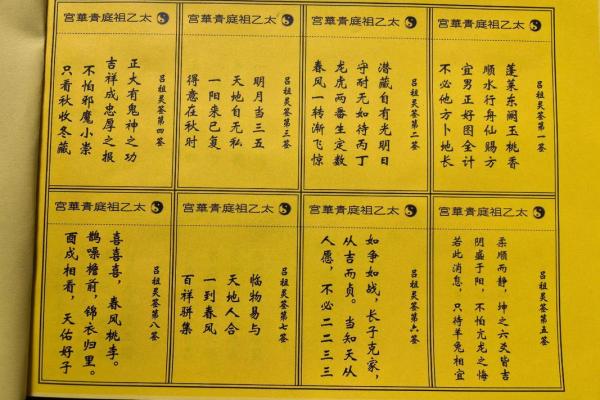 太乙祖庭青華宮
吕祖灵签第一签
蓬莱东阙玉桃香
顺水行舟仙赐方
宜男正好图全计
不必他方卜地长
太乙祖庭青華宮
吕祖灵签第二签
潜藏自有光明日
守耐无如待丙丁
龙虎两番生定数
春风一转渐飞惊
太乙祖庭青華宮
吕祖灵签第三签
明月当三五
天地自无私
一阳来已复
得意在秋时
太乙祖庭青華宮
吕祖灵签第四签
正大有鬼神之功
吉祥成忠厚之报
不怕邪魔小祟
只看秋收冬藏
太乙祖庭青華宮
吕祖灵签第五签
柔顺而静，坤之六爻皆吉
阴盛于阳，不怕亢龙之悔
若此消息，只待羊兔相宜
太乙祖庭青華宮
吕祖灵签第六签
如争如战，长子克家，
从吉而贞。当知天从
人愿，不必二二三三
太乙祖庭青華宮
吕祖灵签第七签
临物易与
天地人合
一到春风
百祥骈集
太乙祖庭青華宮
吕祖灵签第八签
喜喜喜，春风桃李。
鹊噪檐前，锦衣归里。
酉戌相看，天佑好子